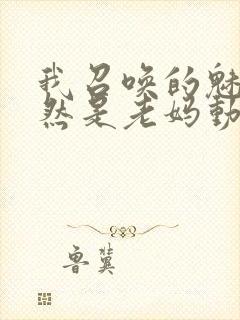 我召唤的魅
然是老妈动
鲁冀